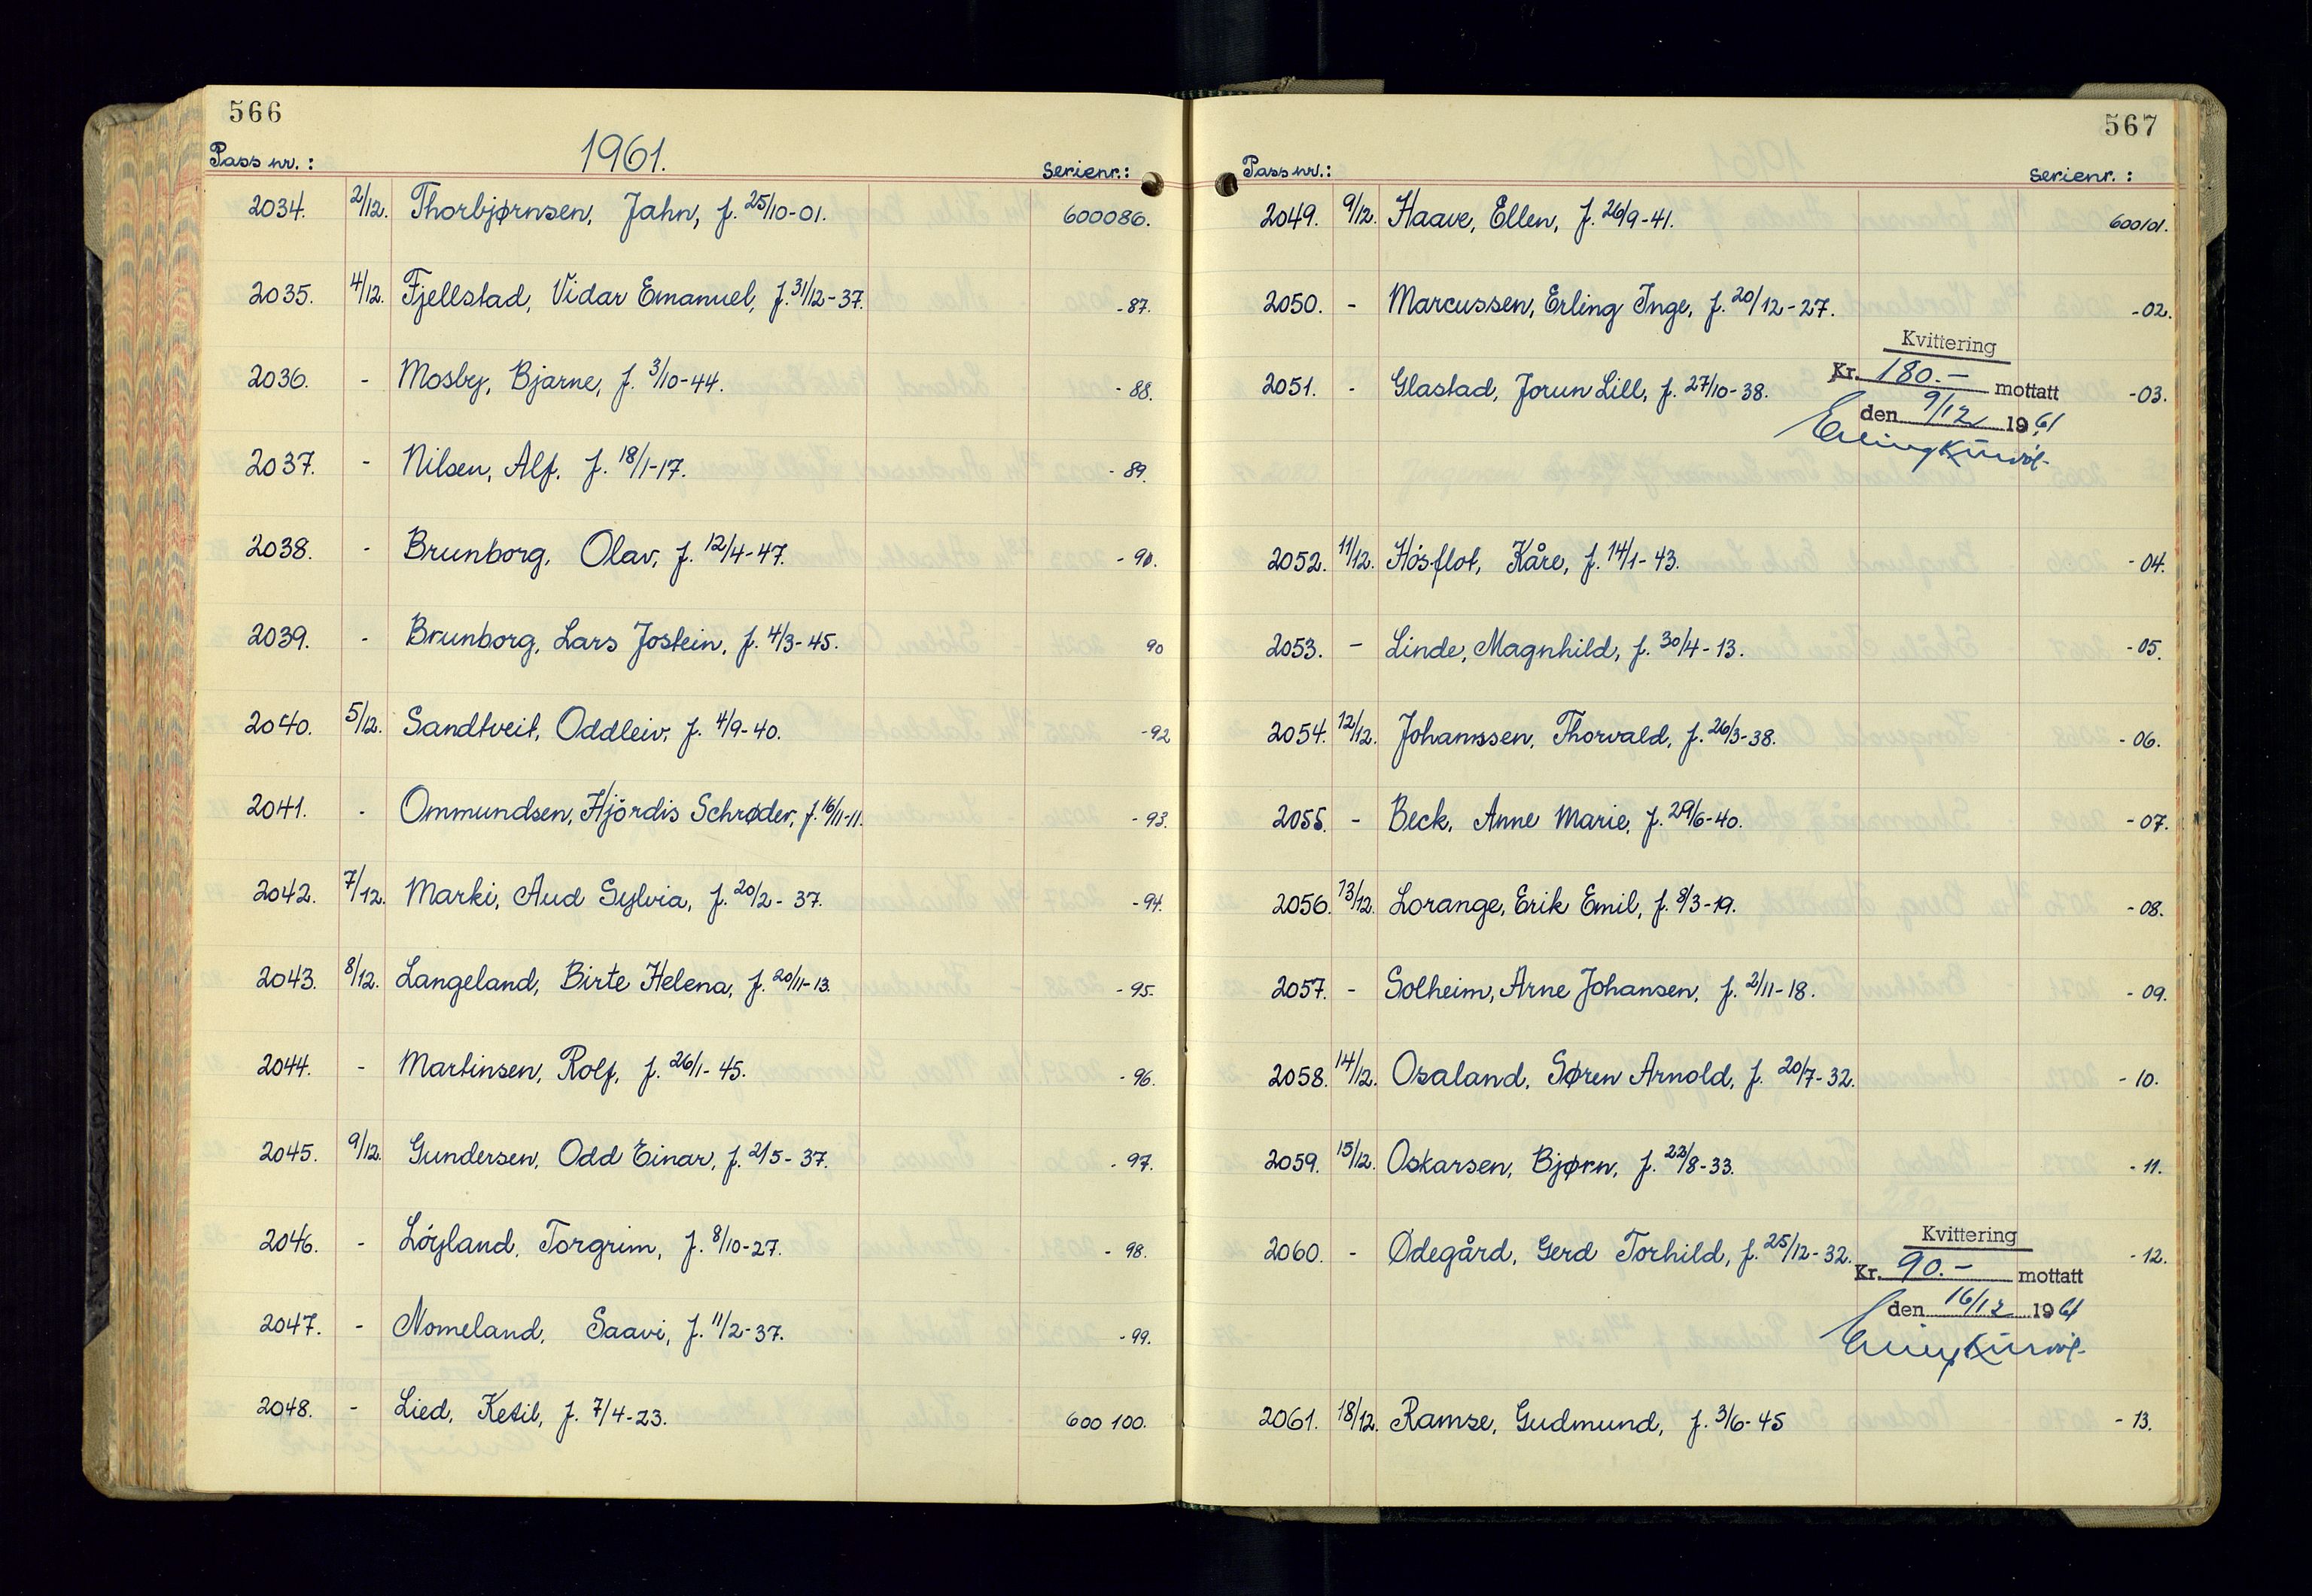 566
Pass nr.: 1961. Serienr.:
2034. 2/12. Thorbjørnsen, Jahn, f. 25/10-01. 600086.
2035. 4/12. Fjellstad, Vidar Emanuel, f. 31/12-37. -87.
2036. - Mosby, Bjarne, f. 3/10-44. -88.
2037. - Nilsen, Alf. f. 18/1-17. -89.
2038. - Brunborg, Olav, f. 12/4-47. -90.
2039. - Brunborg, Lars Jostein, f. 4/3-45. 90
2040. 5/12. Sandtveit, Oddleiv, f. 4/9-40. -92
2041. - Ommundsen, Hjördis Schrøder, f. 16/11-11. -93.
2042. 7/12. Marki, Aud Sylvia, f. 20/2-37. -94.
2043. 8/12. Langeland, Birte Helena, f. 20/11-13. -95.
2044. - Martinsen, Rolf, f. 26/1-45. -96.
2045. 9/12. Gundersen, Odd Einar, f. 2/5-37. -97.
2046. - Löyland, Torgrim, f. 8/10-27. -98.
2047. - Nomeland, Saavi, f. 11/2-37. -99.
2048. - Lied, Ketil, f. 7/4-23. 600 100.
567
Pass nr.: Serienr.:
2049. 9/12. Haave, Ellen, f. 26/9-41. 600101.
2050. - Marcussen, Erling Inge, f. 20/12-27. -02.
Kvittering
2051. - Glastad, Jorun Lill, f. 27/10-38. Kr. 180.- mottatt -03.
den 9/12 1961
2052. 11/12. Hósflot, Kåre, f. 14/1-43. -04.
2053. - Linde, Magnhild, f. 30/4-13. -05.
2054. 12/12. Johanssen, Thorvald, f. 26/3-38. -06.
2055. - Beck, Anne Marie, f. 29/6-40. -07.
2056. 13/12. Lorange, Erik Emil, f. 8/3-19. -08.
2057. - Solheim, Arne Johansen, f. 2/11-18. -09.
2058. 14/12. Osaland, Søren Arnold, f. 20/7-32. -10.
2059. 15/12. Oskarsen, Bjørn, f. 22/8-33. -11.
Kvittering
2060. - Ødegård, Gerd Torhild, f. 25/12-32. Kr. 90.- mottatt -12.
den 16/12 1961
2061. 18/12. Ramse, Gudmund, f. 3/6-45 -13.